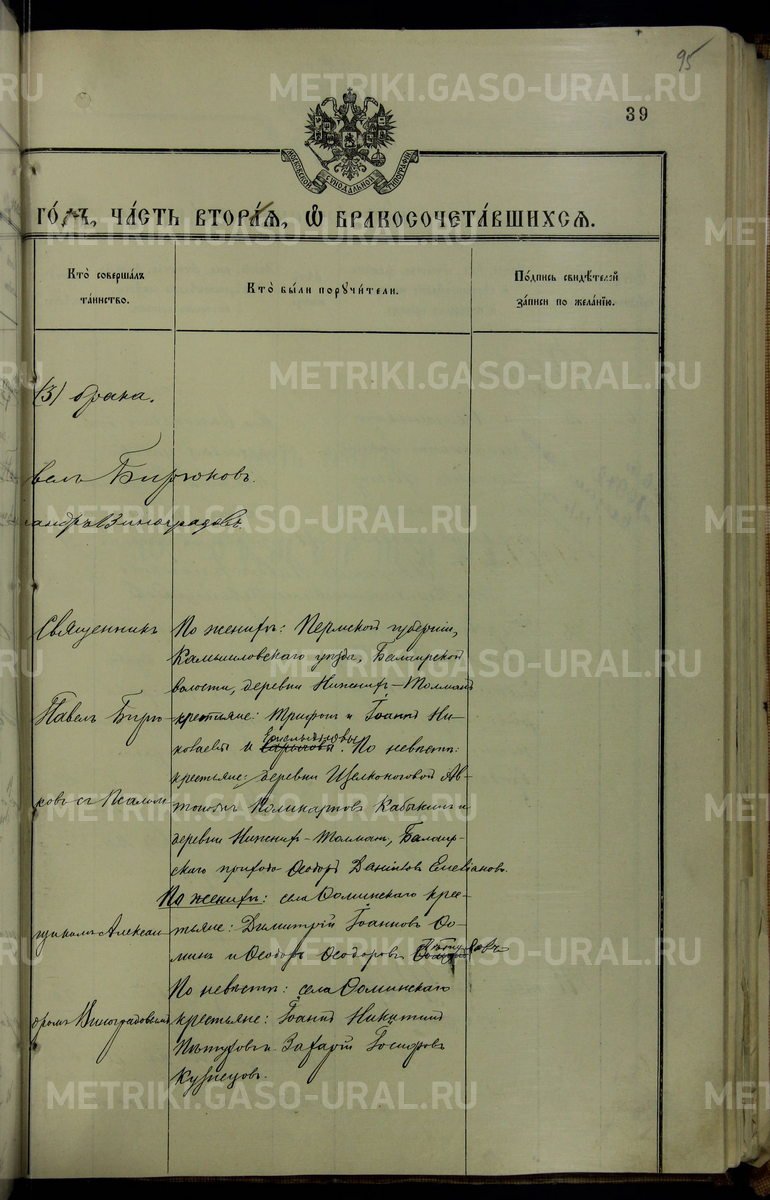 95
39
МОСКОВСКОЙ СѴНОДАЛЬНОЙ ТИПОГРАФІИ
ГО́ДЪ, ЧА́СТЬ ВТОРА́Я, Ѿ БРАКОСОЧЕТА́ВШИХСЯ.
Кто̀ соверша́лъ
та́инство.
Кто̀ бы́ли поручи́тели.
По́дпись свидѣ́телей
за́писи по жела́нію.
(3) брака.
велъ Бирюковъ.
сандръ Виноградовъ.
Священникъ
Павелъ Бирю-
ковъ съ Псалом-
щикомъ Алексан-
дромъ Виноградовымъ
По женихѣ: Пермской губерніи,
Камышловскаго уѣзда, Балаирской
волости, деревни Нижнихъ-
крестьяне: Трифонъ и Іоаннъ Ни-
колаевы и . По невѣстѣ:
крестьяне: деревни Щелконоговой Ав-
тономъ Поликарповъ Кабакинъ и
деревни Нижнихъ- , Балаир-
скаго прихода Ѳеодоръ Даніиловъ .
По женихѣ: села Ѳоминскаго крес-
тьяне: Димитрій Іоанновъ Ѳо-
минъ и Ѳеодоръ Ѳеодоровъ
По невѣстѣ: села Ѳоминскаго
крестьяне: Іоаннъ Никитинъ
Пѣтуховъ и Захарій Іосифовъ
Кузнецовъ.
METRIKI.GASO-URAL.RU